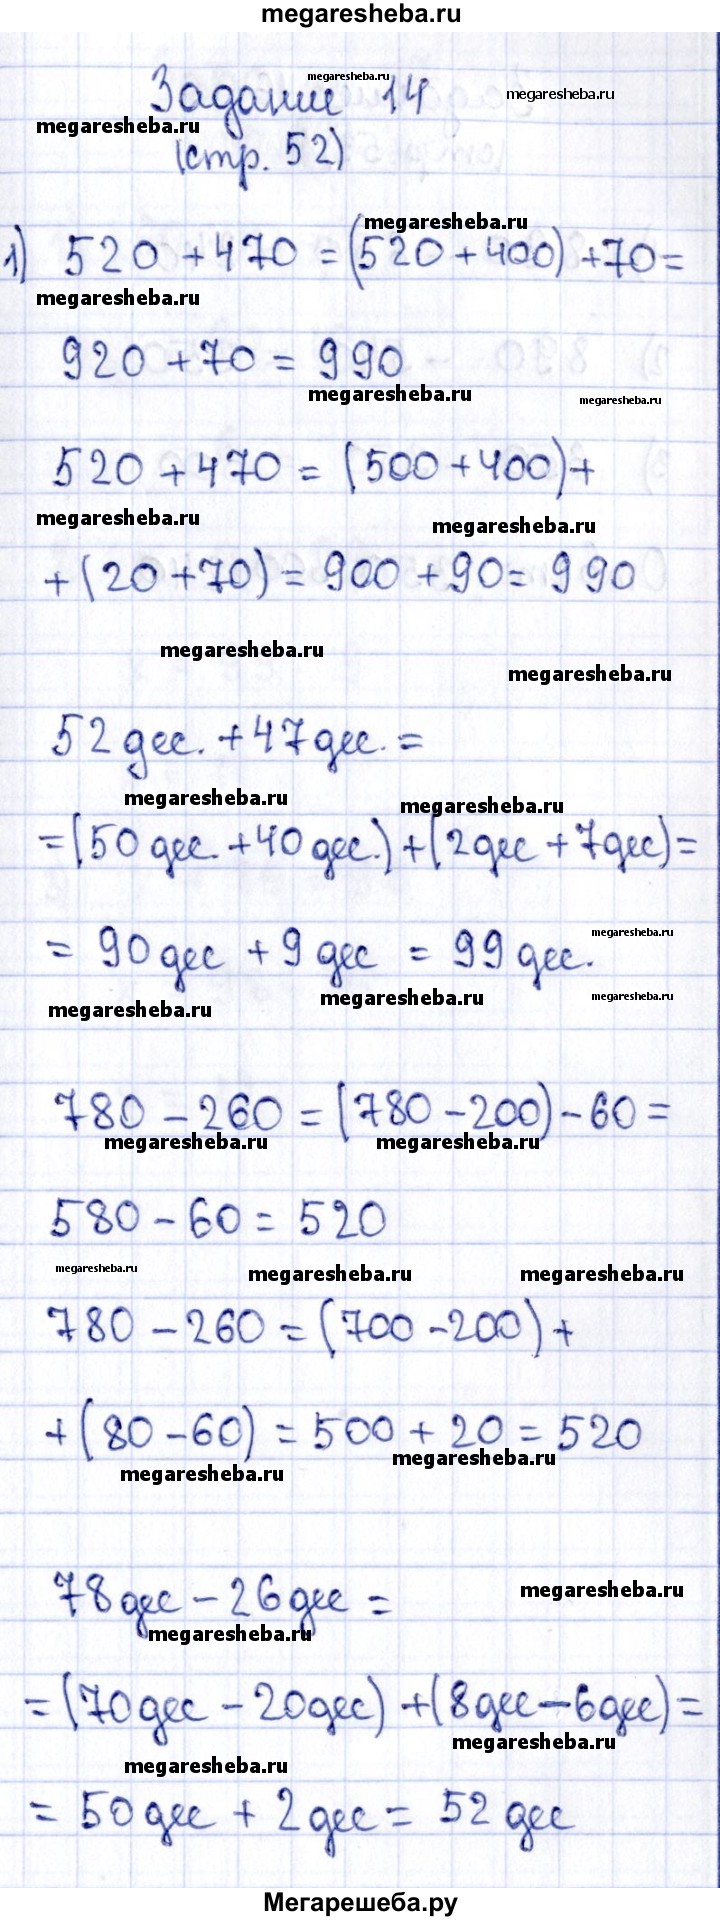 megaresheba.ru
megaresheba.ru
Задание 14
megaresheba.ru
megaresheba.ru
(стр. 52)
megaresheba.ru
1) 520 + 470 = (520 + 400) + 70 =
megaresheba.ru
920 + 70 = 990
megaresheba.ru
megaresheba.ru
520 + 470 = (500 + 400) +
megaresheba.ru
megaresheba.ru
+ (20 + 70) = 900 + 90 = 990
megaresheba.ru
megaresheba.ru
52 дес. + 47 дес. =
megaresheba.ru
megaresheba.ru
= (50 дес. + 40 дес.) + (2 дес + 7 дес) =
megaresheba.ru
= 90 дес + 9 дес = 99 дес.
megaresheba.ru
megaresheba.ru
megaresheba.ru
780 - 260 = (780 - 200) - 60 =
megaresheba.ru
megaresheba.ru
580 - 60 = 520
megaresheba.ru
megaresheba.ru
megaresheba.ru
780 - 260 = (700 - 200) +
+ (80 - 60) = 500 + 20 = 520
megaresheba.ru
megaresheba.ru
megaresheba.ru
78 дес - 26 дес =
megaresheba.ru
= (70 дес - 20 дес) + (8 дес - 6 дес) =
megaresheba.ru
megaresheba.ru
= 50 дес + 2 дес = 52 дес
Мегарешеба.ру